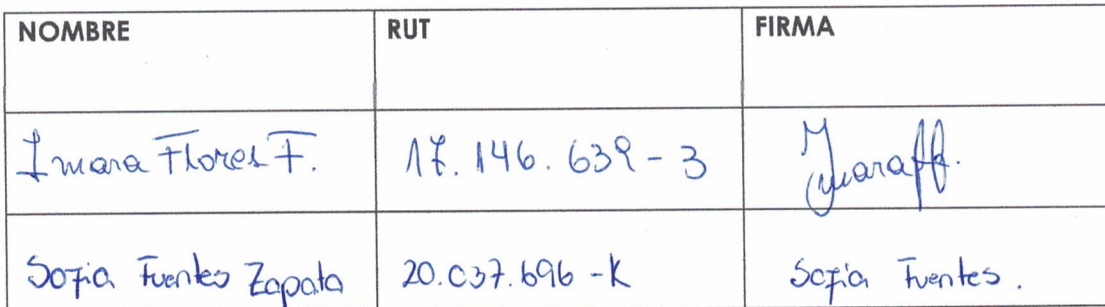 NOMBRE RUT FIRMA
Imara Flores F. 17.146.639-3 Imaraff.
Sofia Fuentes Zapata 20.037.696-K Sofia Fuentes.